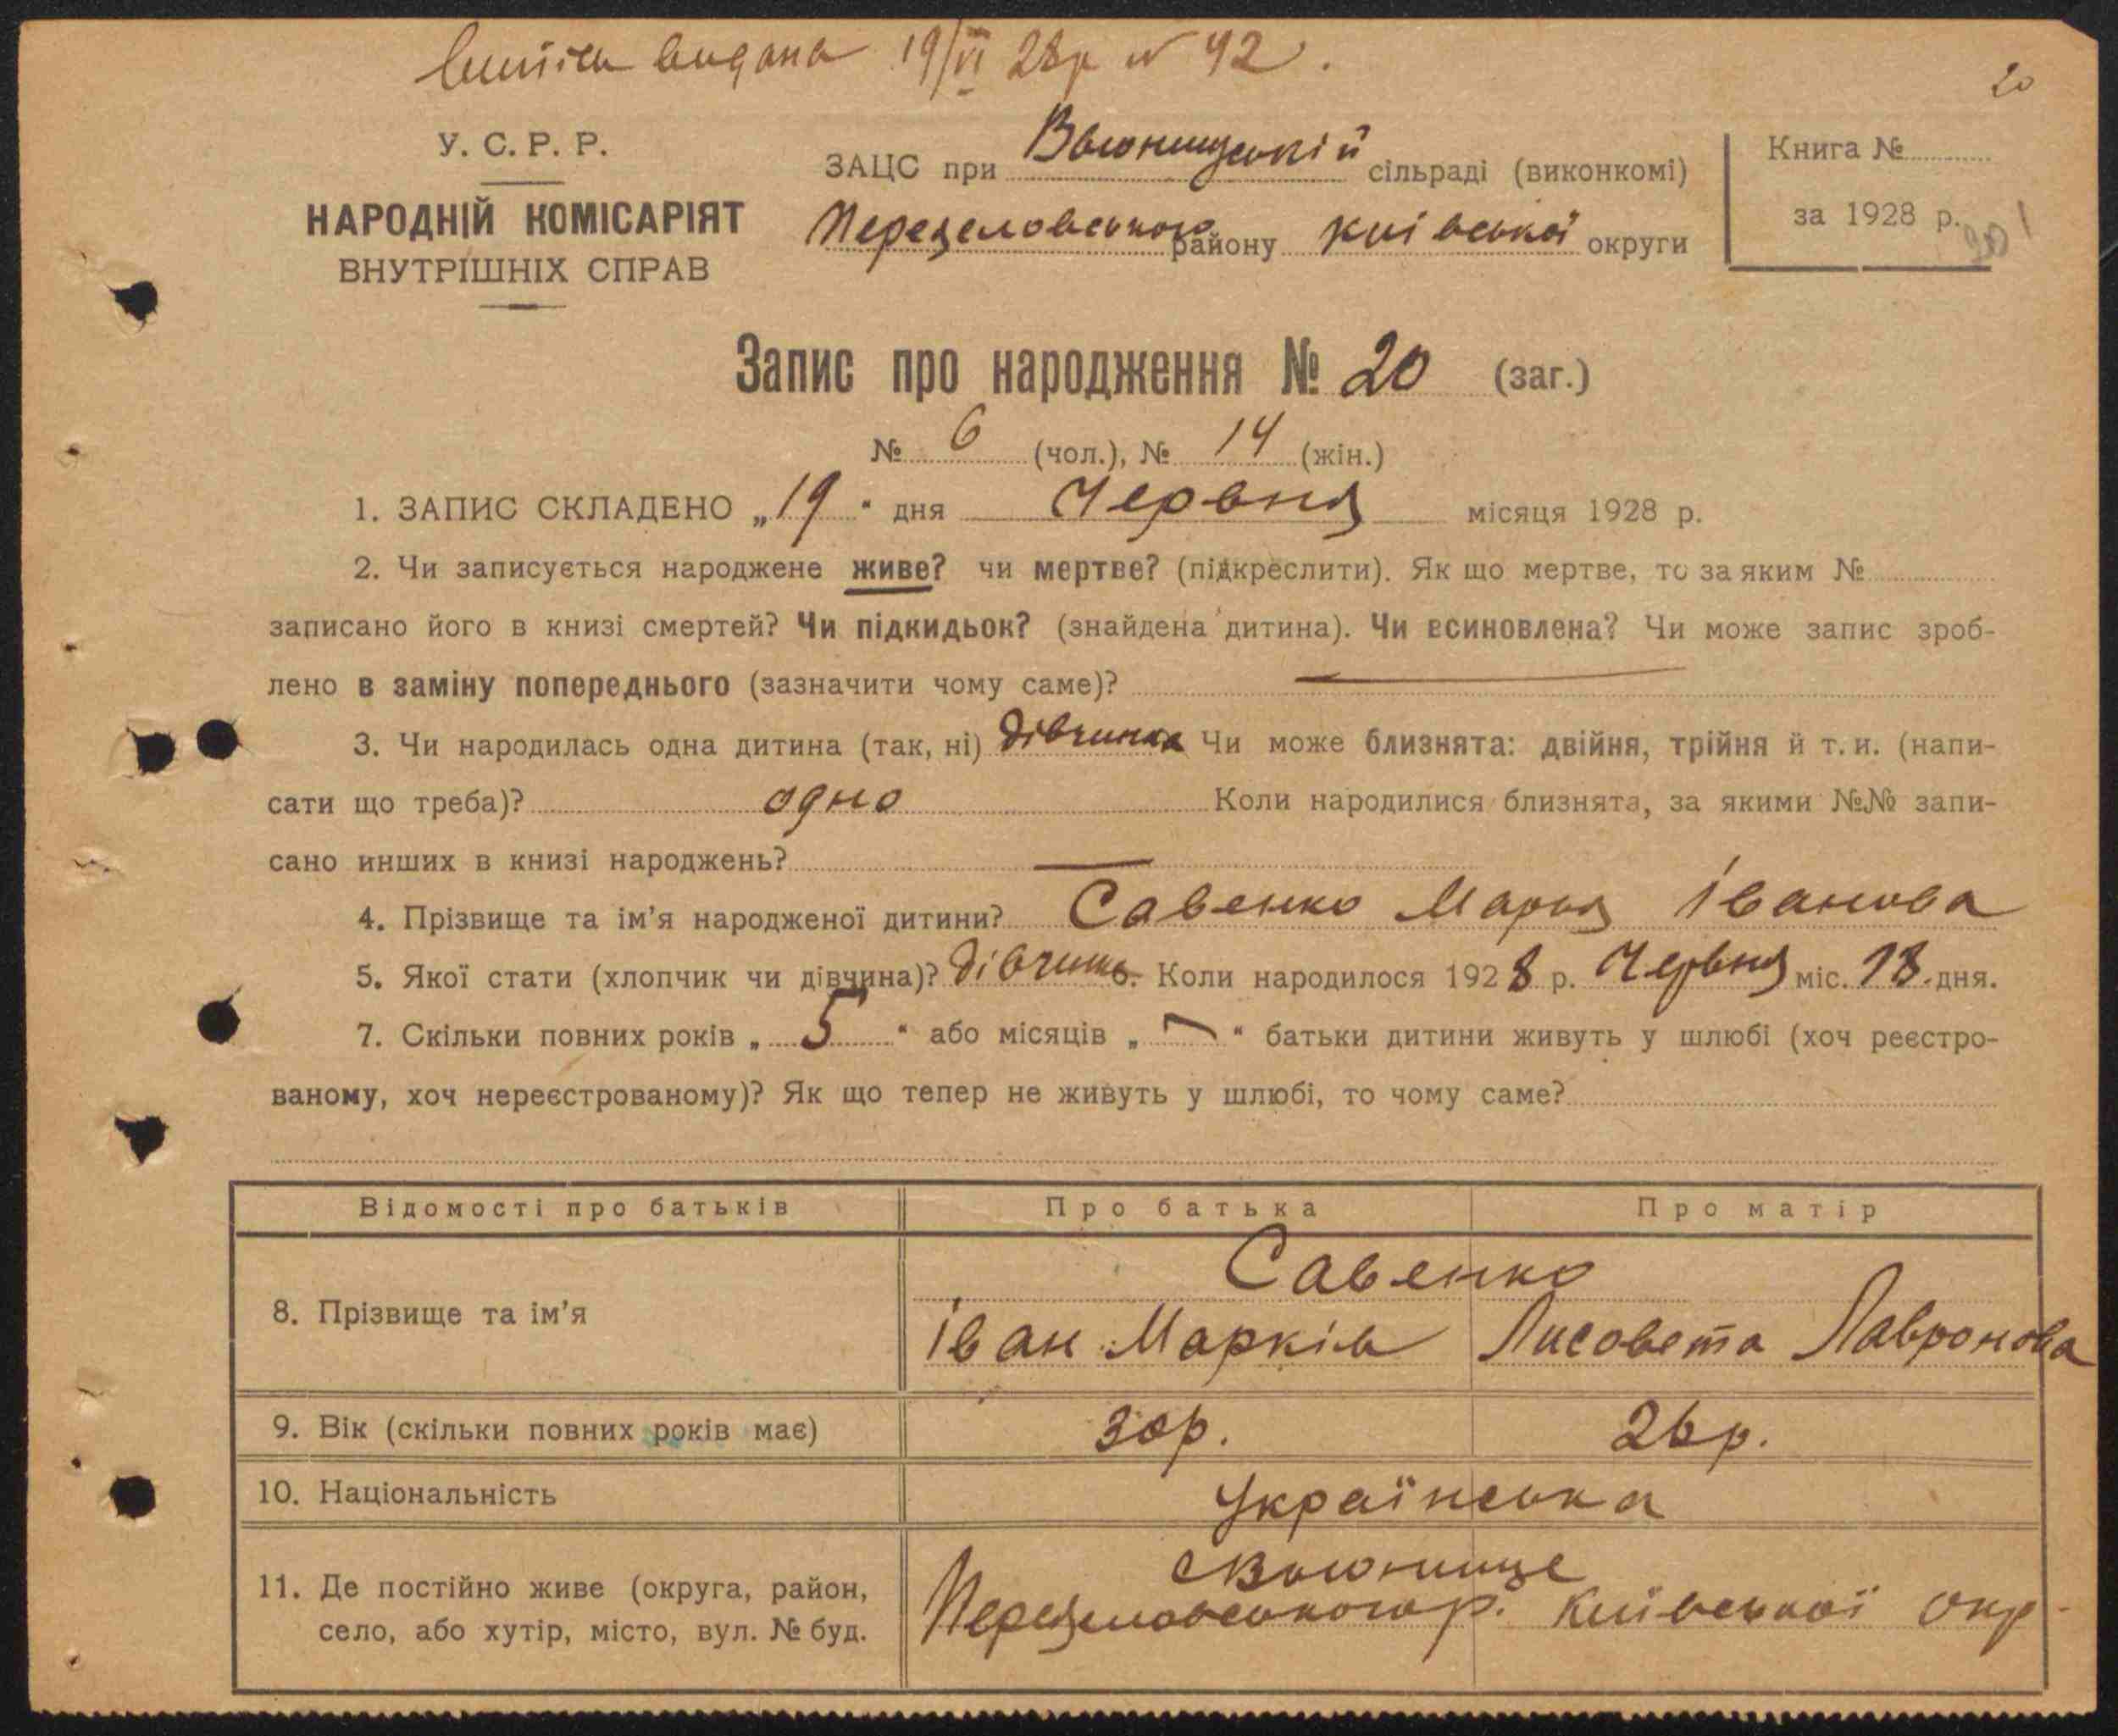 випись видана 19/VI 28р № 42.
20
У. С. Р. Р.
НАРОДНІЙ КОМІСАРІЯТ
ВНУТРІШНІХ СПРАВ
ЗАЦС при Вьюнищський сільраді (виконкомі)
району київської округи
Книга №
за 1928 р.
Запис про народження № 20 (заг.)
№ 6 (чол.), № 14 (жін.)
1. ЗАПИС СКЛАДЕНО „19“ дня Червня місяця 1928 р.
2. Чи записується народжене живе? чи мертве? (підкреслити). Як що мертве, то за яким №
записано його в книзі смертей? Чи підкидьок? (знайдена дитина). Чи всиновлена? Чи може запис зроб-
лено в заміну попереднього (зазначити чому саме)?
3. Чи народилась одна дитина (так, ні) дівчинка Чи може близнята: двійня, трійня й т. и. (напи-
сати що треба)? одно Коли народилися близнята, за якими №№ запи-
сано инших в книзі народжень? —
4. Прізвище та ім’я народженої дитини? Савенко Мария Іванова
5. Якої стати (хлопчик чи дівчина)? дівчинка 6. Коли народилося 1928 р. Червня міс. 18 дня.
7. Скільки повних років „ 5 “ або місяців „ — “ батьки дитини живуть у шлюбі (хоч реєстро-
ваному, хоч нереєстрованому)? Як що тепер не живуть у шлюбі, то чому саме?
Відомості про батьків Про батька Про матір
8. Прізвище та ім’я Савенко
Іван Марків Лисовета Лавронова
9. Вік (скільки повних років має) 30р. 26р.
10. Національність Українська
11. Де постійно живе (округа, район,
село, або хутір, місто, вул. № буд.
с Вьюнище
р. Київської окр.